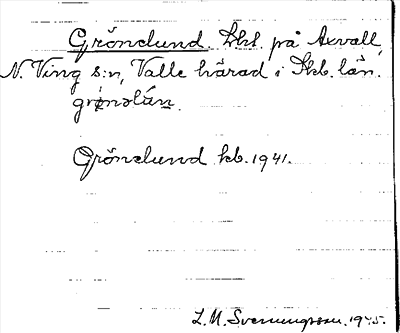 Grönelund. Lht. på Axvall,
N. Ving s:n, Valle härad i Skb. län.
grønəlúṇ.
Grönelund kb. 1941.
L. M. Svenungsson. 1945.